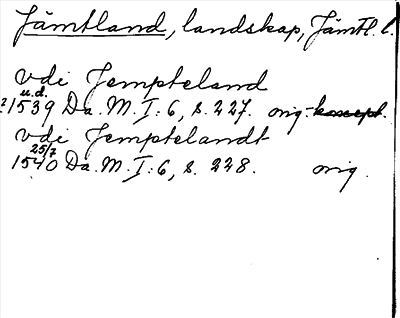 Jämtland, landskap, Jämtl. l.
vdi Jempteland
u.d.
1539 Da. M. I: 6, s. 227. orig. koncept.
vdi Jemptelandt
25/7
1540 Da. M. I: 6, s. 228. orig.